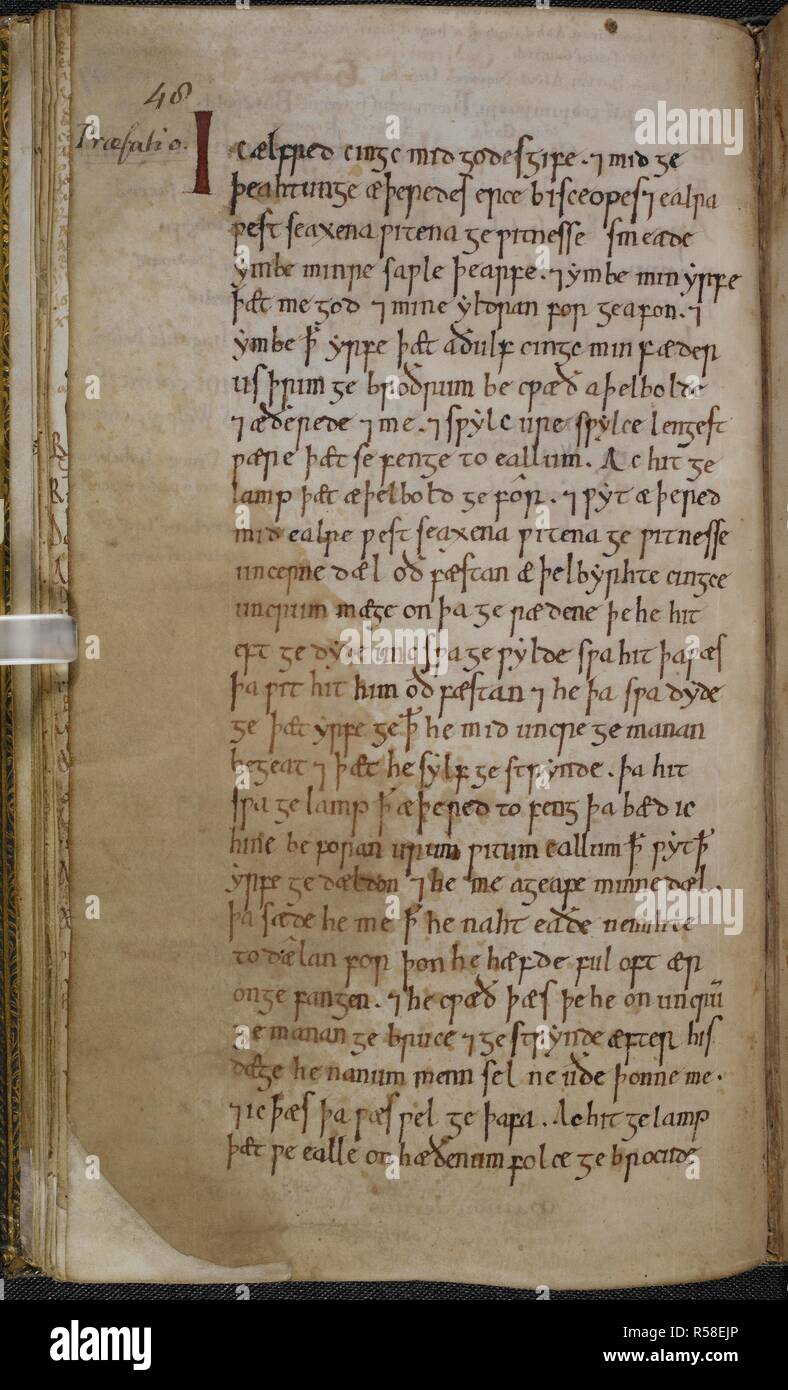 48
Præfatio.
Ic ælfred cingc mid godes gife . ⁊ mid ge
þeahtunge æþeredes erce bisceopes ⁊ ealra
ƿest seaxena ƿitena ge ƿitnesse smeade
ẏmbe minre saƿle þearfe . ⁊ ẏmbe min ẏrfe
þæt me god ⁊ mine ẏldran for geafon . ⁊
ẏmbe ꝥ ẏrfe þæt aðulf cingc min fæder
us þrim ge broðrum be cƿæð aþelbolde
⁊ æðerede ⁊ me . ⁊ sƿẏlc ure sƿẏlce lengest
ƿære þæt se fenge to eallum . Ac hit ge
lamp þæt æþelbold ge fór . ⁊ ƿẏt æþered
mid ealre ƿest seaxena ƿitena ge ƿitnesse
uncerne dæl oð fæstan æþelbẏrhte cingce
uncrum mæge on þa ge rædene þe he hit
eft ge dẏde unc sƿa ge ƿẏlde sƿa hit þa ƿæs
þa ƿit hit him oð fæstan ⁊ he þa sƿa dẏde
ge þæt ẏrfe ge ꝥ he mid uncre ge manan
begeat ⁊ þæt he sẏlf ge strẏnde . þa hit
sƿa ge lamp ꝥ æþered to feng þa bæd ic
hine be foran urum ƿitum eallum ꝥ ƿẏt ꝥ
ẏrfe ge dældon ⁊ he me ageafe minne dæl .
þa sæde he me ꝥ he naht eaðe ne mihte
to dælan for þon he hæfde ful oft ær
onge fangen . ⁊ he cƿæð þæs þe he on uncrū
ge manan ge bruce ⁊ ge strẏnde æfter his
dæge he nanum menn sel ne uðe þonne me .
⁊ ic þæs þa ƿæs ƿel ge þafa . Ac hit ge lamp
þæt ƿe ealle on hæðenum folce ge brocude
alamy
a
alamy
alamy stock photo
Image ID: R58EJP
www.alamy.com